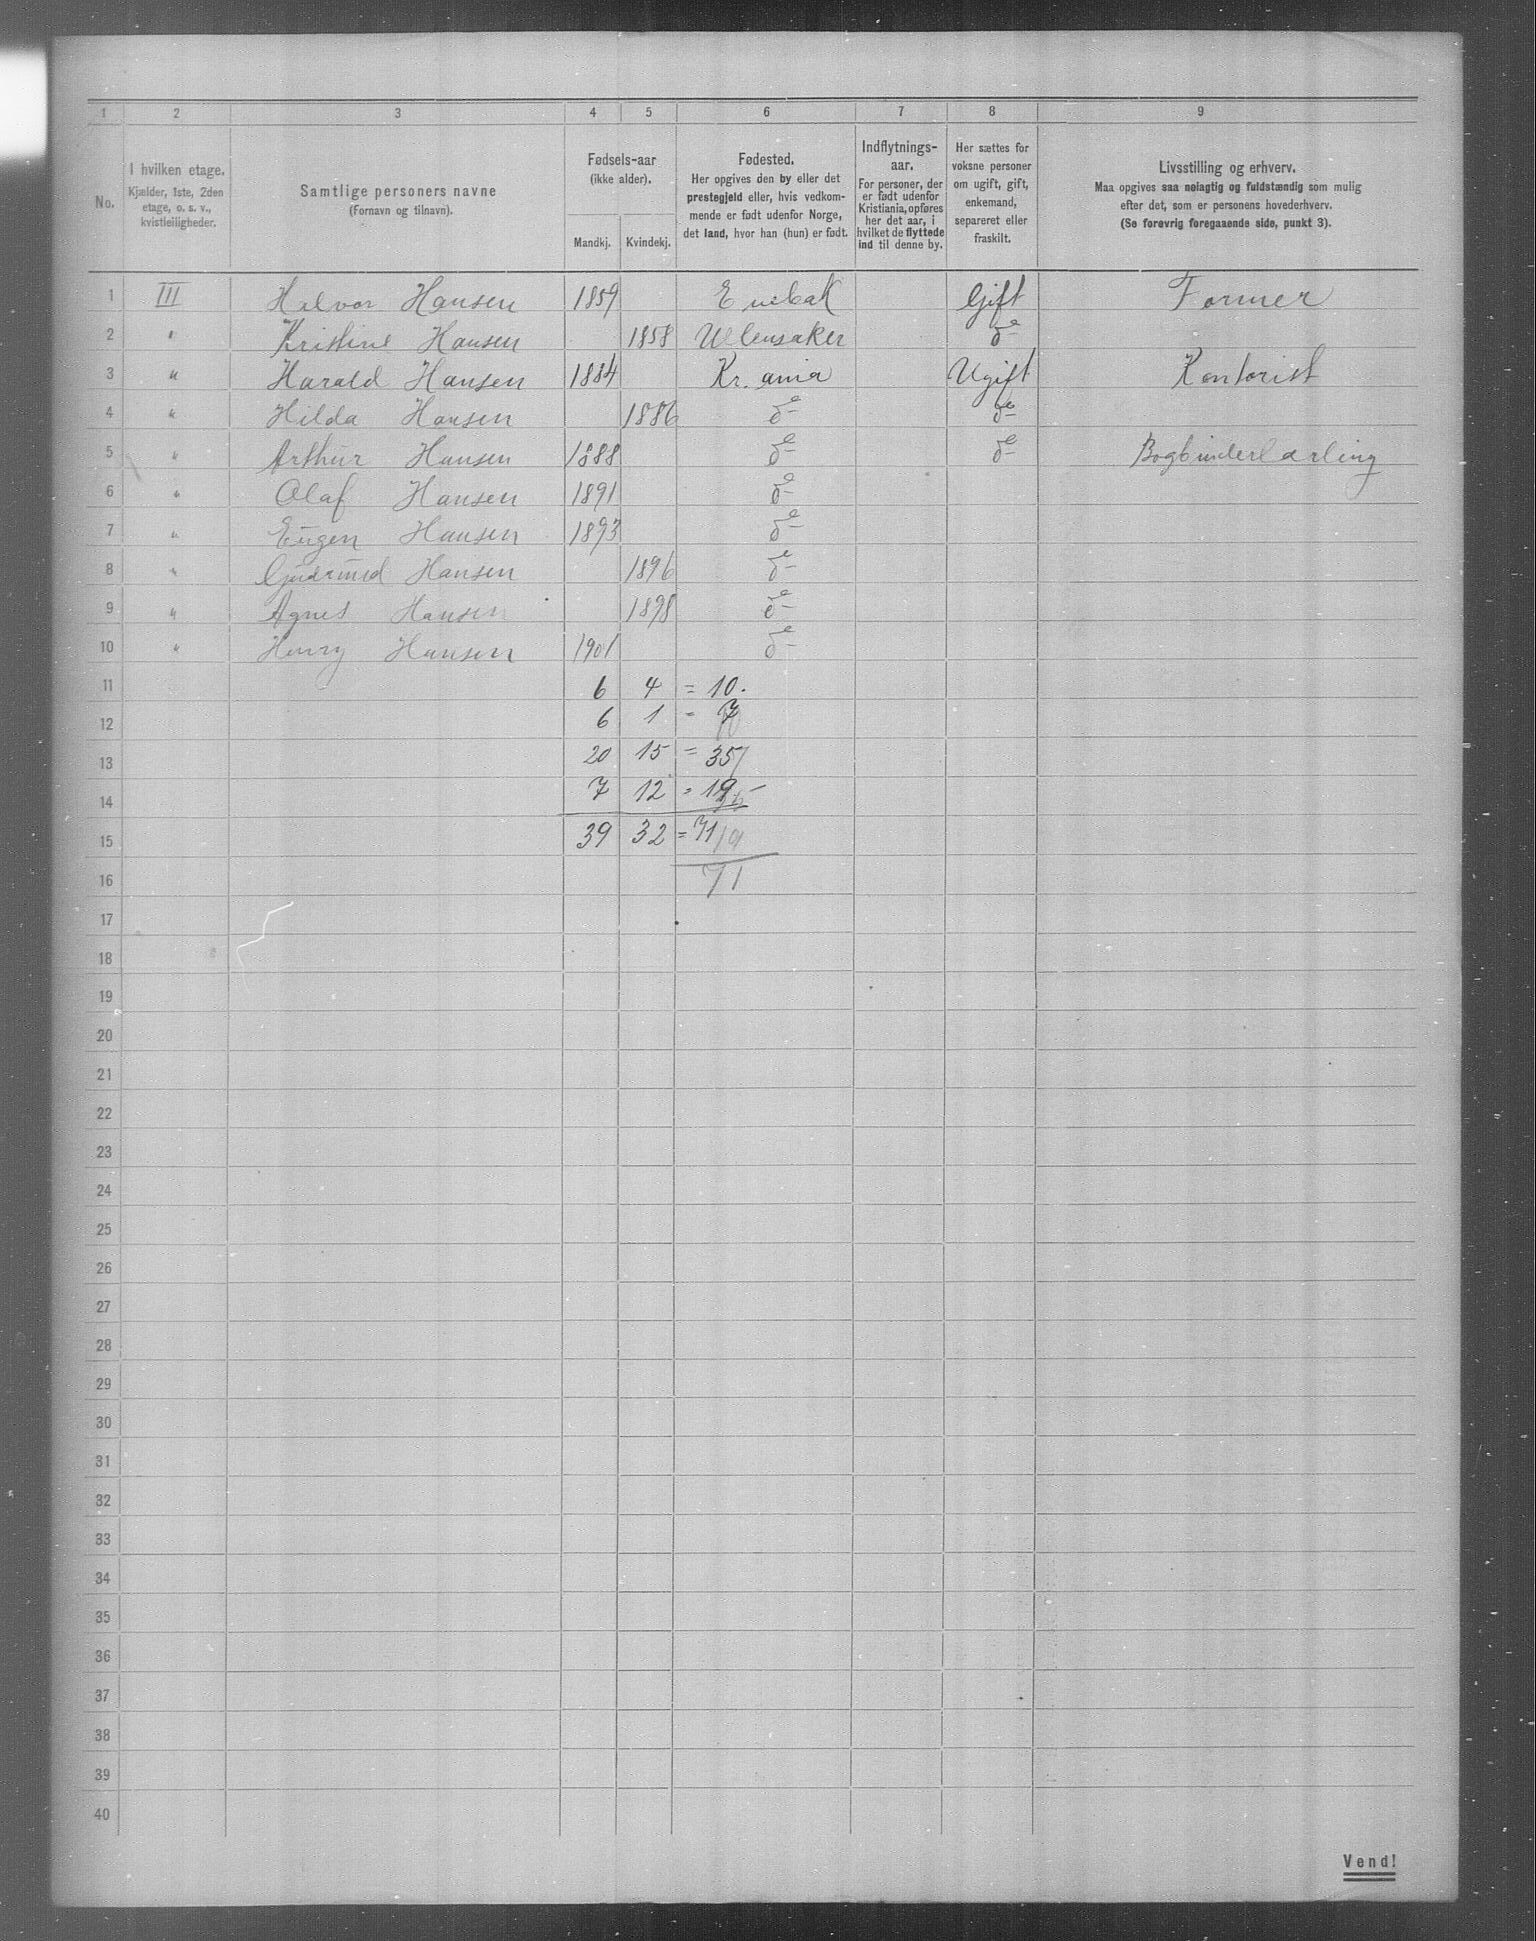 1 2 3 4 5 6 7 8 9
No.
I hvilken etage.
Kjælder, 1ste, 2den
etage, o. s. v.,
kvistleiligheder.
Samtlige personers navne
(Fornavn og tilnavn).
Fødsels-aar
(ikke alder).
Mandkj. Kvindekj.
Fødested.
Her opgives den by eller det
prestegjeld eller, hvis vedkom-
mende er født udenfor Norge,
det land, hvor han (hun) er født.
Indflytnings-
aar.
For personer, der
er født udenfor
Kristiania, opføres
her det aar, i
hvilket de flyttede
ind til denne by.
Her sættes for
voksne personer
om ugift, gift,
enkemand,
separeret eller
fraskilt.
Livsstilling og erhverv.
Maa opgives saa nøiagtig og fuldstændig som mulig
efter det, som er personens hovederhverv.
(Se forøvrig foregaaende side, punkt 3).
1 III Halvor Hansen 1859 Enebak Gift Former
2 " Kristine Hansen 1858 Ullensaker do
3 " Harald Hansen 1884 Kr.ania Ugift Kontorist
4 " Hilda Hansen 1886 do do
5 " Arthur Hansen 1888 do do Bogbinderlærling
6 " Olaf Hansen 1891 do
7 " Eugen Hansen 1893 do
8 " Gudrund Hansen 1896 do
9 " Agnes Hansen 1898 do
10 " Henry Hansen 1901 do
11 6 4 = 10.
12 6 1 = 7
13 20 15 = 35
14 7 12 = 19
15 39 32 = 71
16 71
17
18
19
20
21
22
23
24
25
26
27
28
29
30
31
32
33
34
35
36
37
38
39
40
Vend!